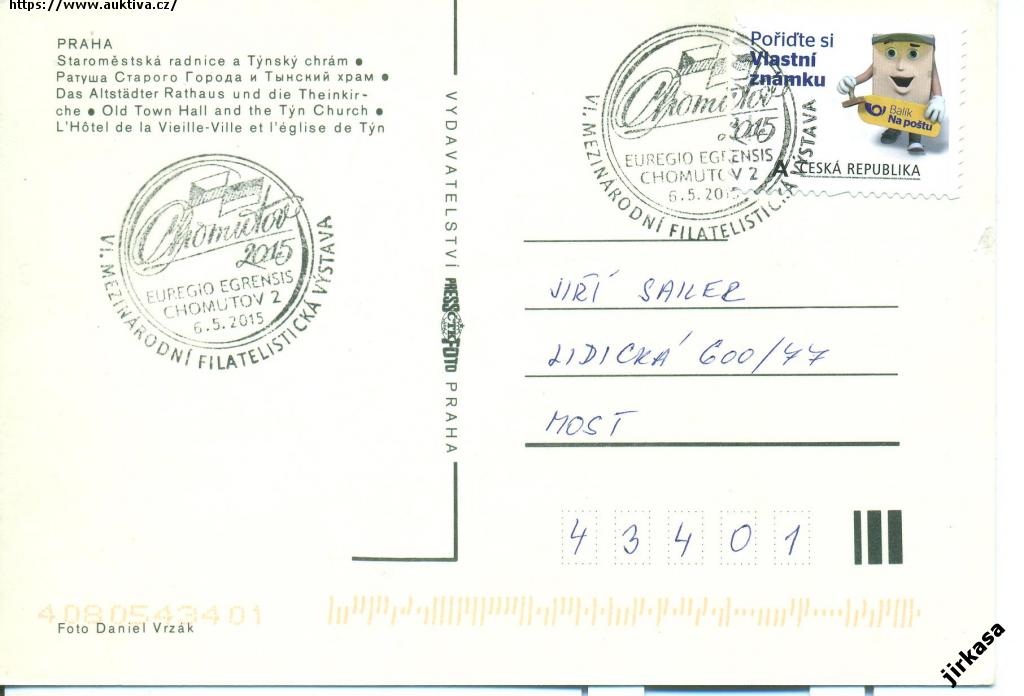 https://www.auktiva.cz/
PRAHA
Staroměstská radnice a Týnský chrám ●
Ратуша Старого Города и Тынский храм ●
Das Altstädter Rathaus und die Theinkir-
che ● Old Town Hall and the Týn Church ●
L'Hôtel de la Vieille-Ville et l'église de Týn
Chomutov
2015
EUREGIO EGRENSIS
CHOMUTOV 2
6.5.2015
VI. MEZINÁRODNÍ FILATELISTICKÁ VÝSTAVA
VYDAVATELSTVÍ PRESSFOTO PRAHA
ČTK
Chomutov
2015
EUREGIO EGRENSIS
CHOMUTOV 2
6.5.2015
VI. MEZINÁRODNÍ FILATELISTICKÁ VÝSTAVA
Pořiďte si
Vlastní
známku
Balík
Na poštu
A ČESKÁ REPUBLIKA
JIŘÍ SAILER
LIDICKÁ 600/77
MOST
43401
4080543401
Foto Daniel Vrzák
jirkasa